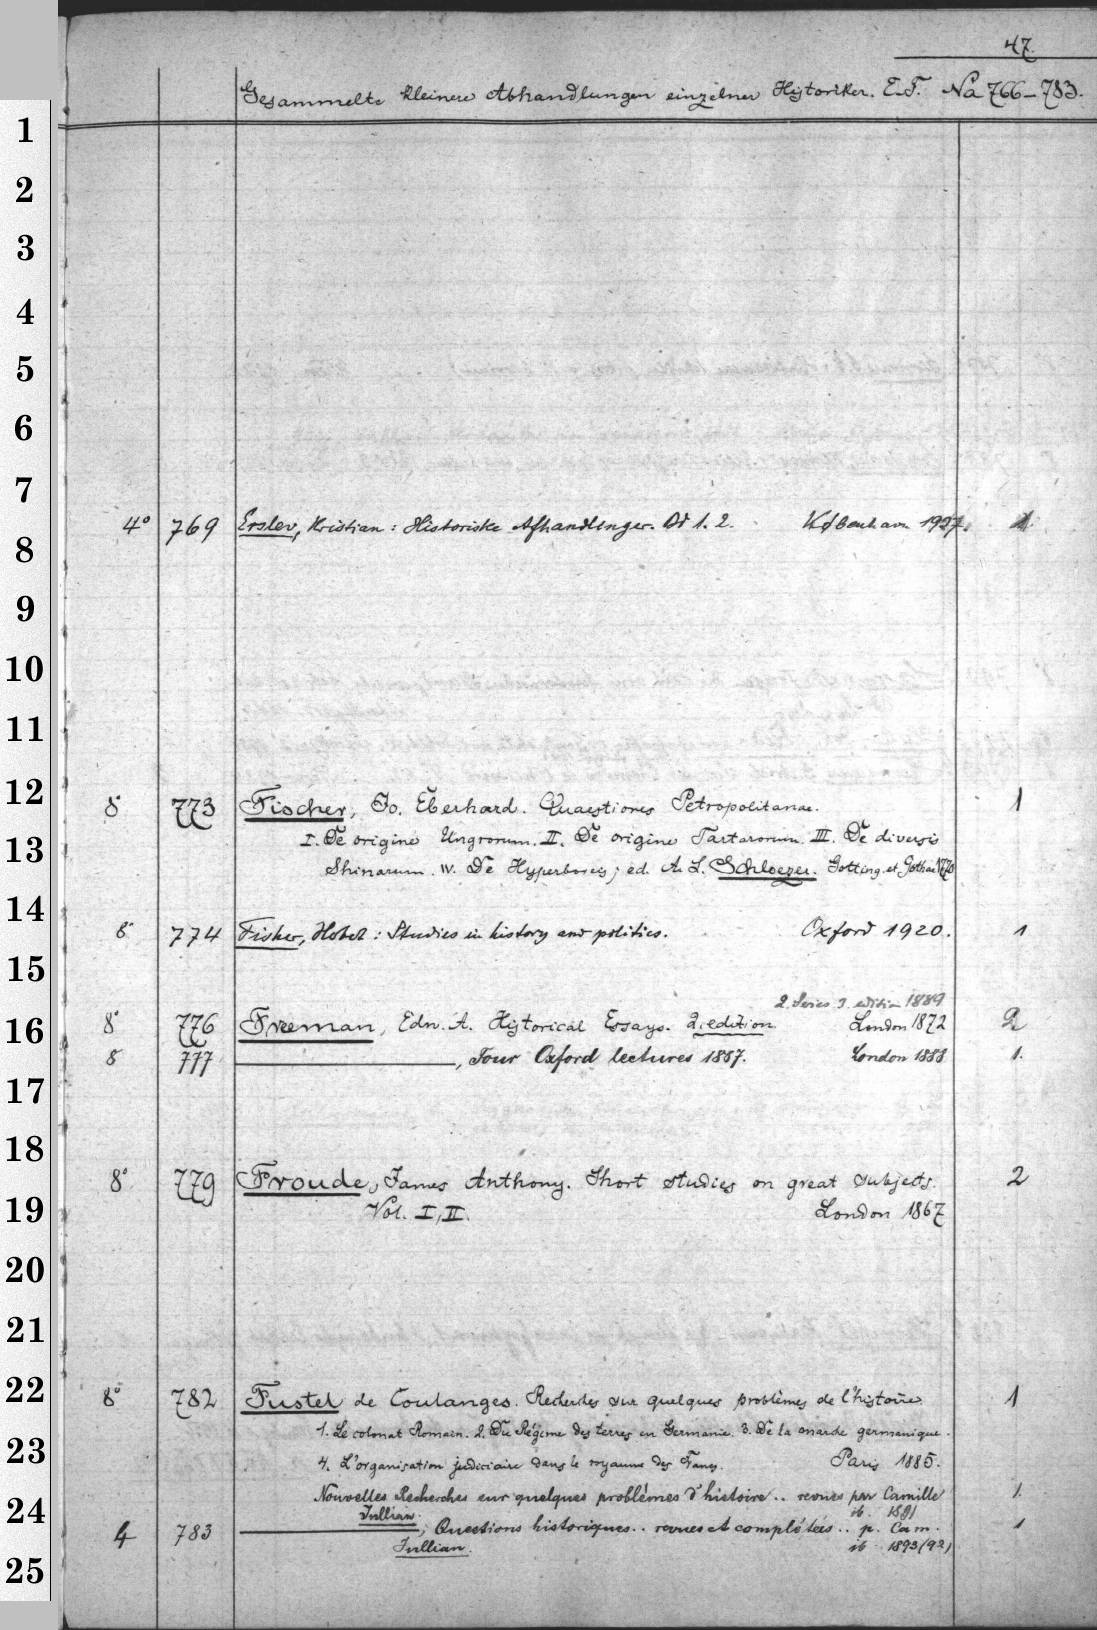 47.
Gesammelte kleinere Abhandlungen einzelner Historiker. E.F. Na 766–783.
1
2
3
4
5
6
7
4° 769 Erslev, Kristian: Historiske Afhandlinger. Bd 1. 2. København 1927. 1
8
9
10
11
12
8° 773 Fischer, Jo. Eberhard. Quaestiones Petropolitanae. 1
I. De origine Ungrorum. II. De origine Tartarorum. III. De diversis
13
Shinarum. IV. De Hyperboreis; ed. A. L. Schloezer. Gotting. et Gothae 1770
14
8° 774 Fisher, Hobet: Studies in history and politics. Oxford 1920. 1
15
2. Series 3. edition 1889
16
8° 776 Freeman, Edw. A. Historical Essays. 2. edition London 1872 2
8° 777 ———, Four Oxford lectures 1887. London 1888 1.
17
18
8° 779 Froude, James Anthony. Short studies on great subjects. 2
19
Vol. I, II. London 1867
20
21
22
8° 782 Fustel de Coulanges. Recherches sur quelques problèmes de l'histoire 1
1. Le colonat Romain. 2. Du Régime des terres en Germanie. 3. De la marche germanique.
23
4. L'organisation judiciaire dans le royaume des Francs. Paris 1885.
Nouvelles Recherches sur quelques problèmes d'histoire.. revues par Camille 1.
24
Jullian. ib. 1891
4 783 ———, Questions historiques.. revues et complétées.. p. Cam. 1
Jullian. ib 1893(92)
25